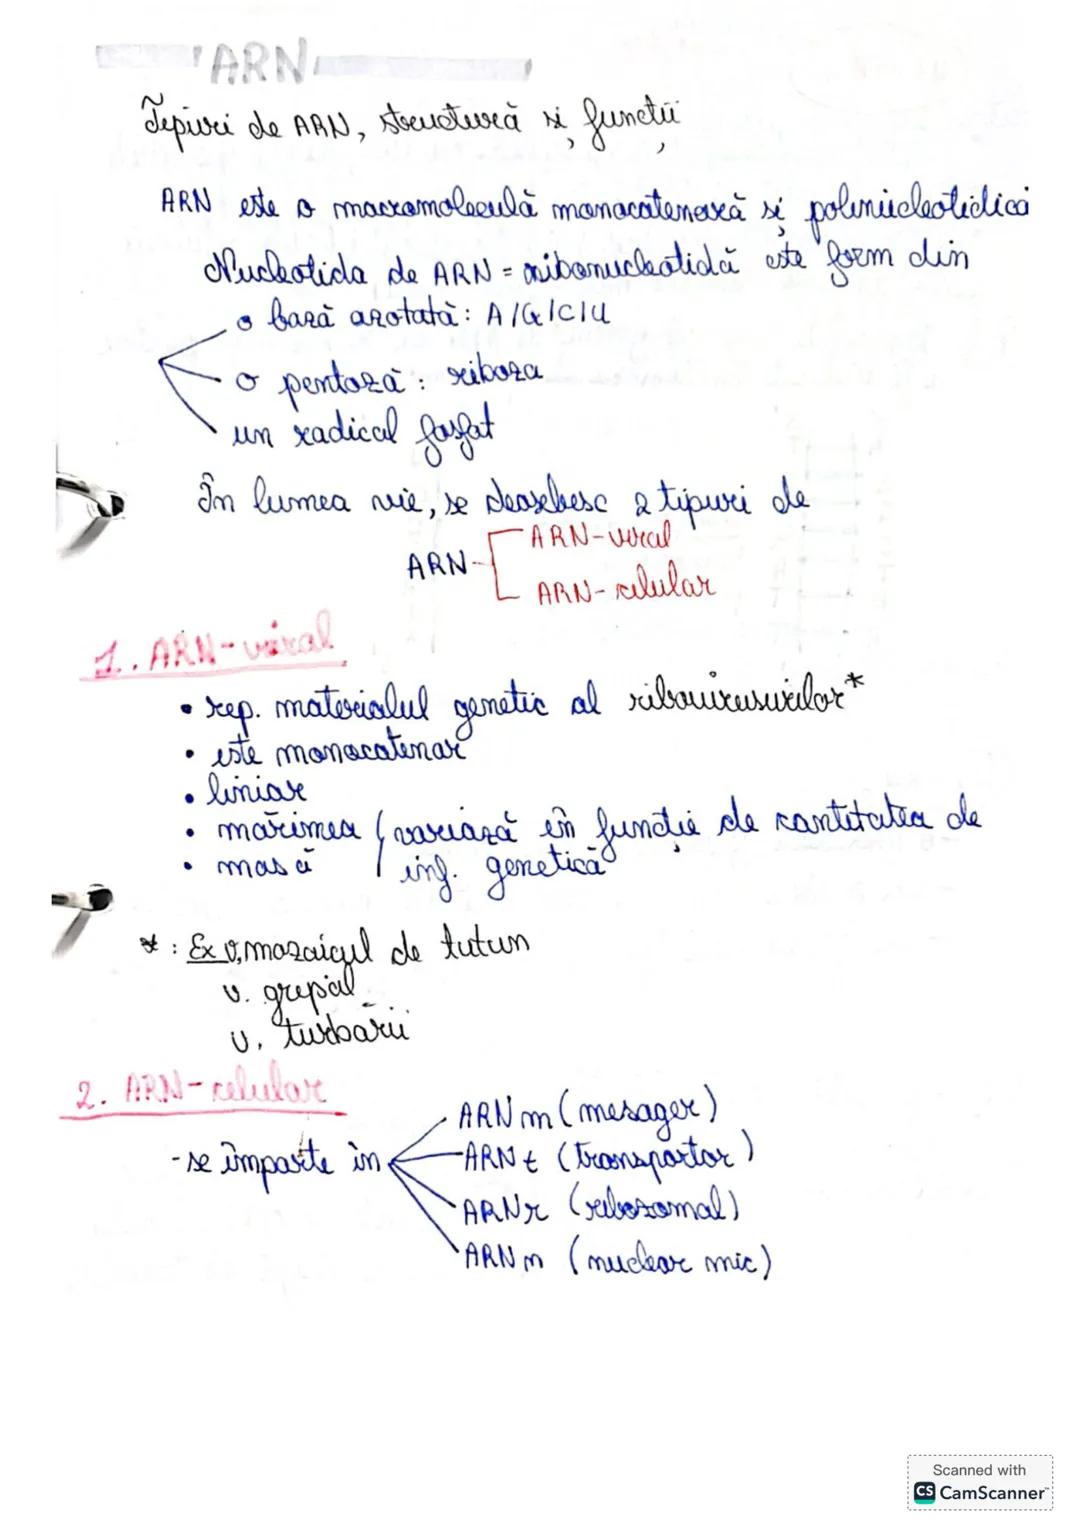 ARN
Tipuri de ARN, structură și funcții
ARN este o macromoleculă monocatenară și polinucleotidică
Nucleotida de ARN = ribonucleotidă este form din
o bază azotată: A/G/C/U
o pentoză: riboza
un radical fosfat
În lumea vie, se deosebesc 2 tipuri de
ARN-viral
ARN
ARN-celular
1. ARN-viral
• rep. materialul genetic al ribovirusurilor*
• este monocatenar
• liniar
• mărimea / variază în funcție de cantitatea de
• masa / inf. genetică
* : Ex v. mozaicul de tutun
v. gripal
v. turbării
2. ARN-celular
ARNm (mesager)
- se împarte în
ARNt (transportor)
ARNr (ribozomal)
ARNn (nuclear mic)
Scanned with
CS CamScanner